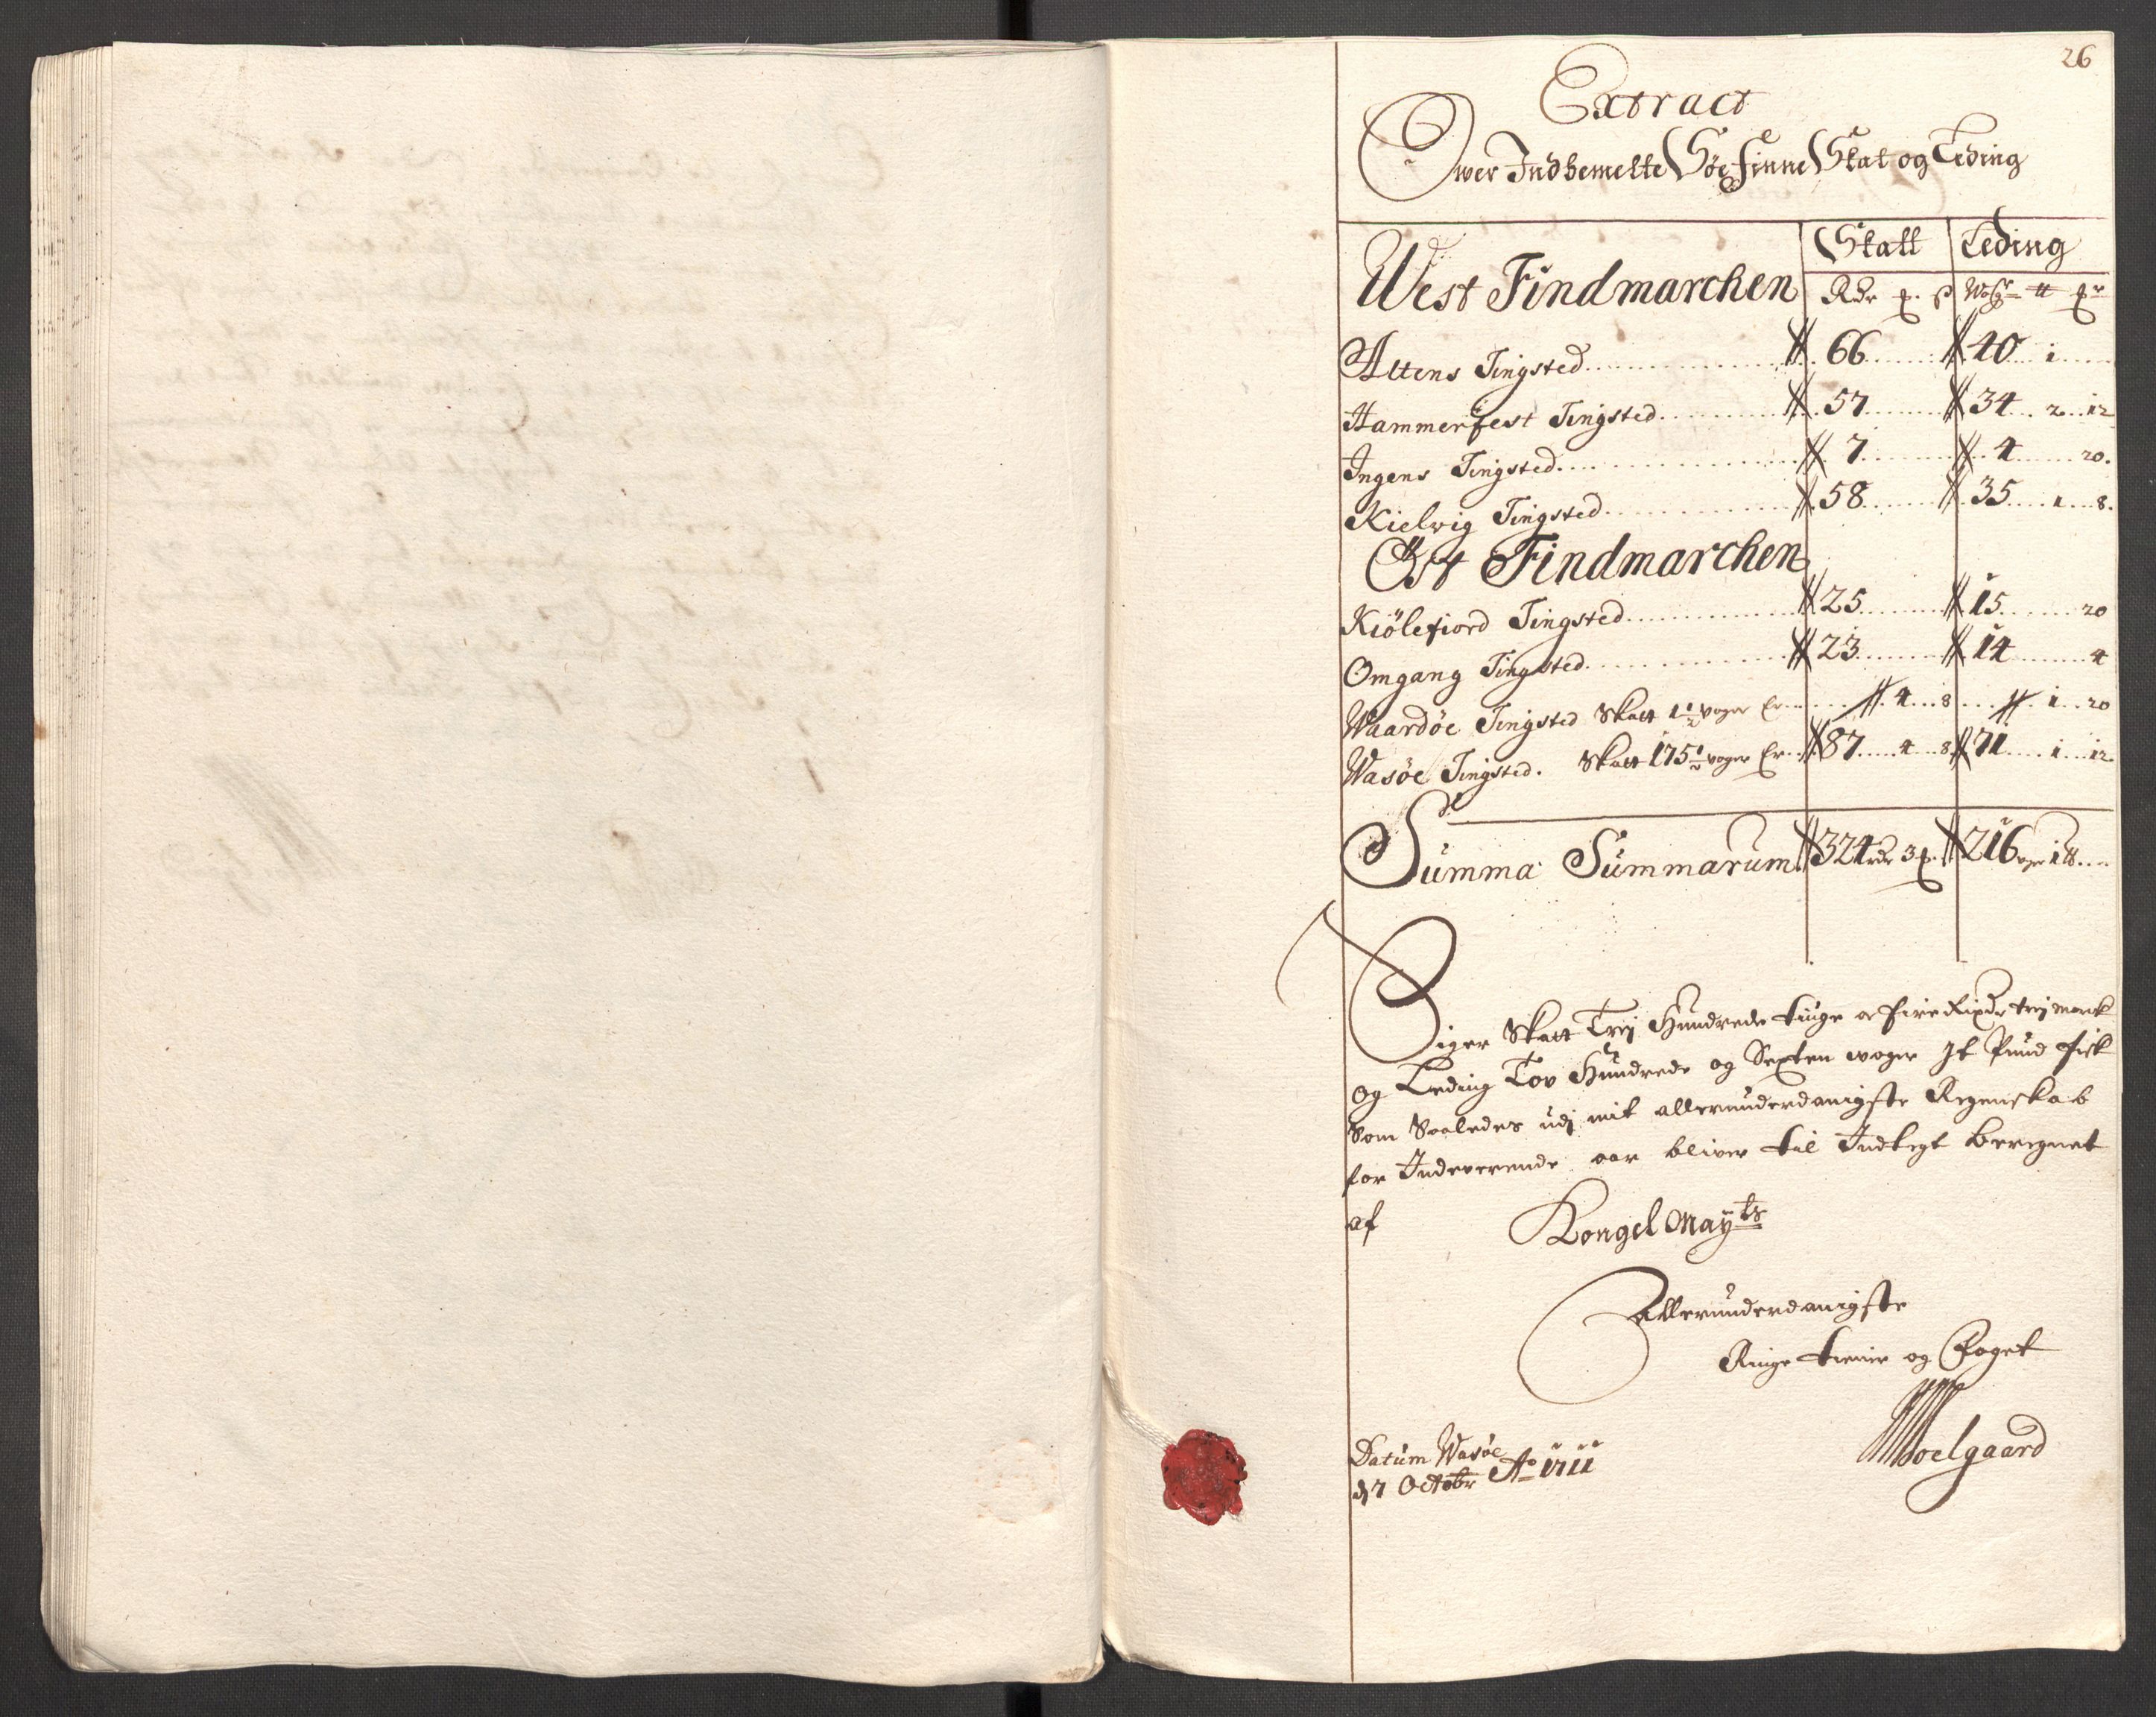 26
Extract
Over Indbemelte Søe Finne Skat og Leding
Skatt Leding
West Findmarchen Rdr # ß Woger # #
Altens Tingsted 66 40 1
Hammerfest Tingsted 57 34 2 12
Ingens Tingsted 7 4 20
Kielvig Tingsted 58 35 1 8
Øst Findmarchen
Kiölefiord Tingsted 25 15 20
Omgang Tingsted 23 14 4
Waardöe Tingsted Skatt 1½ woger Er 4 8 1 20
Wasöe Tingsted. Skatt 175½ woger Er 87 4 8 71 1 12
Summa Summarum 324 rdr 3 # 216 wger 1 #
Siger Skatt Trej Hundrede tiuge og fire Rixdr trej mark
og Leding Tov Hundrede og Sexten woger It Pund Fisk
Som Saaledes udj mit allerunderdanigste Regenskab
for Indeverende aar bliver til Indtegt beregnet
af Kongel Mayts
allerunderdanigste
Ringe tiener og Foget
Datum Wasöe
d 7 Octobr Ao 1711
Soelgaard